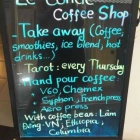 Le Conde
Coffee Shop
Take away (Coffee,
smoothies, ice blend, hot
drinks...)
Tarot: every Thursday
Hand pour coffee
V60, Chemex
Syphon, Frenchpress
Aero press
With coffee bean: Lâm
Đồng VN, Ethiopia,
Columbia